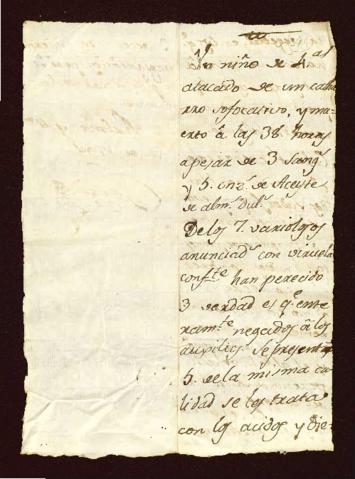 Un niño de 4 a.s
atacado de un catar
ro sofocativo, y mu
erto à las 38 horas
apesar de 3 sang.s
y 5. onz.s de Aceyte
de alm.s dul.s
De los 7. variolosos
anunciad.s con viruela
conf.te han perecido
3 verdad es q.e ente
ram.te negados à los
auxilios. Se presentan
5. de la misma ca
lidad se los trata
con los acidos y die-